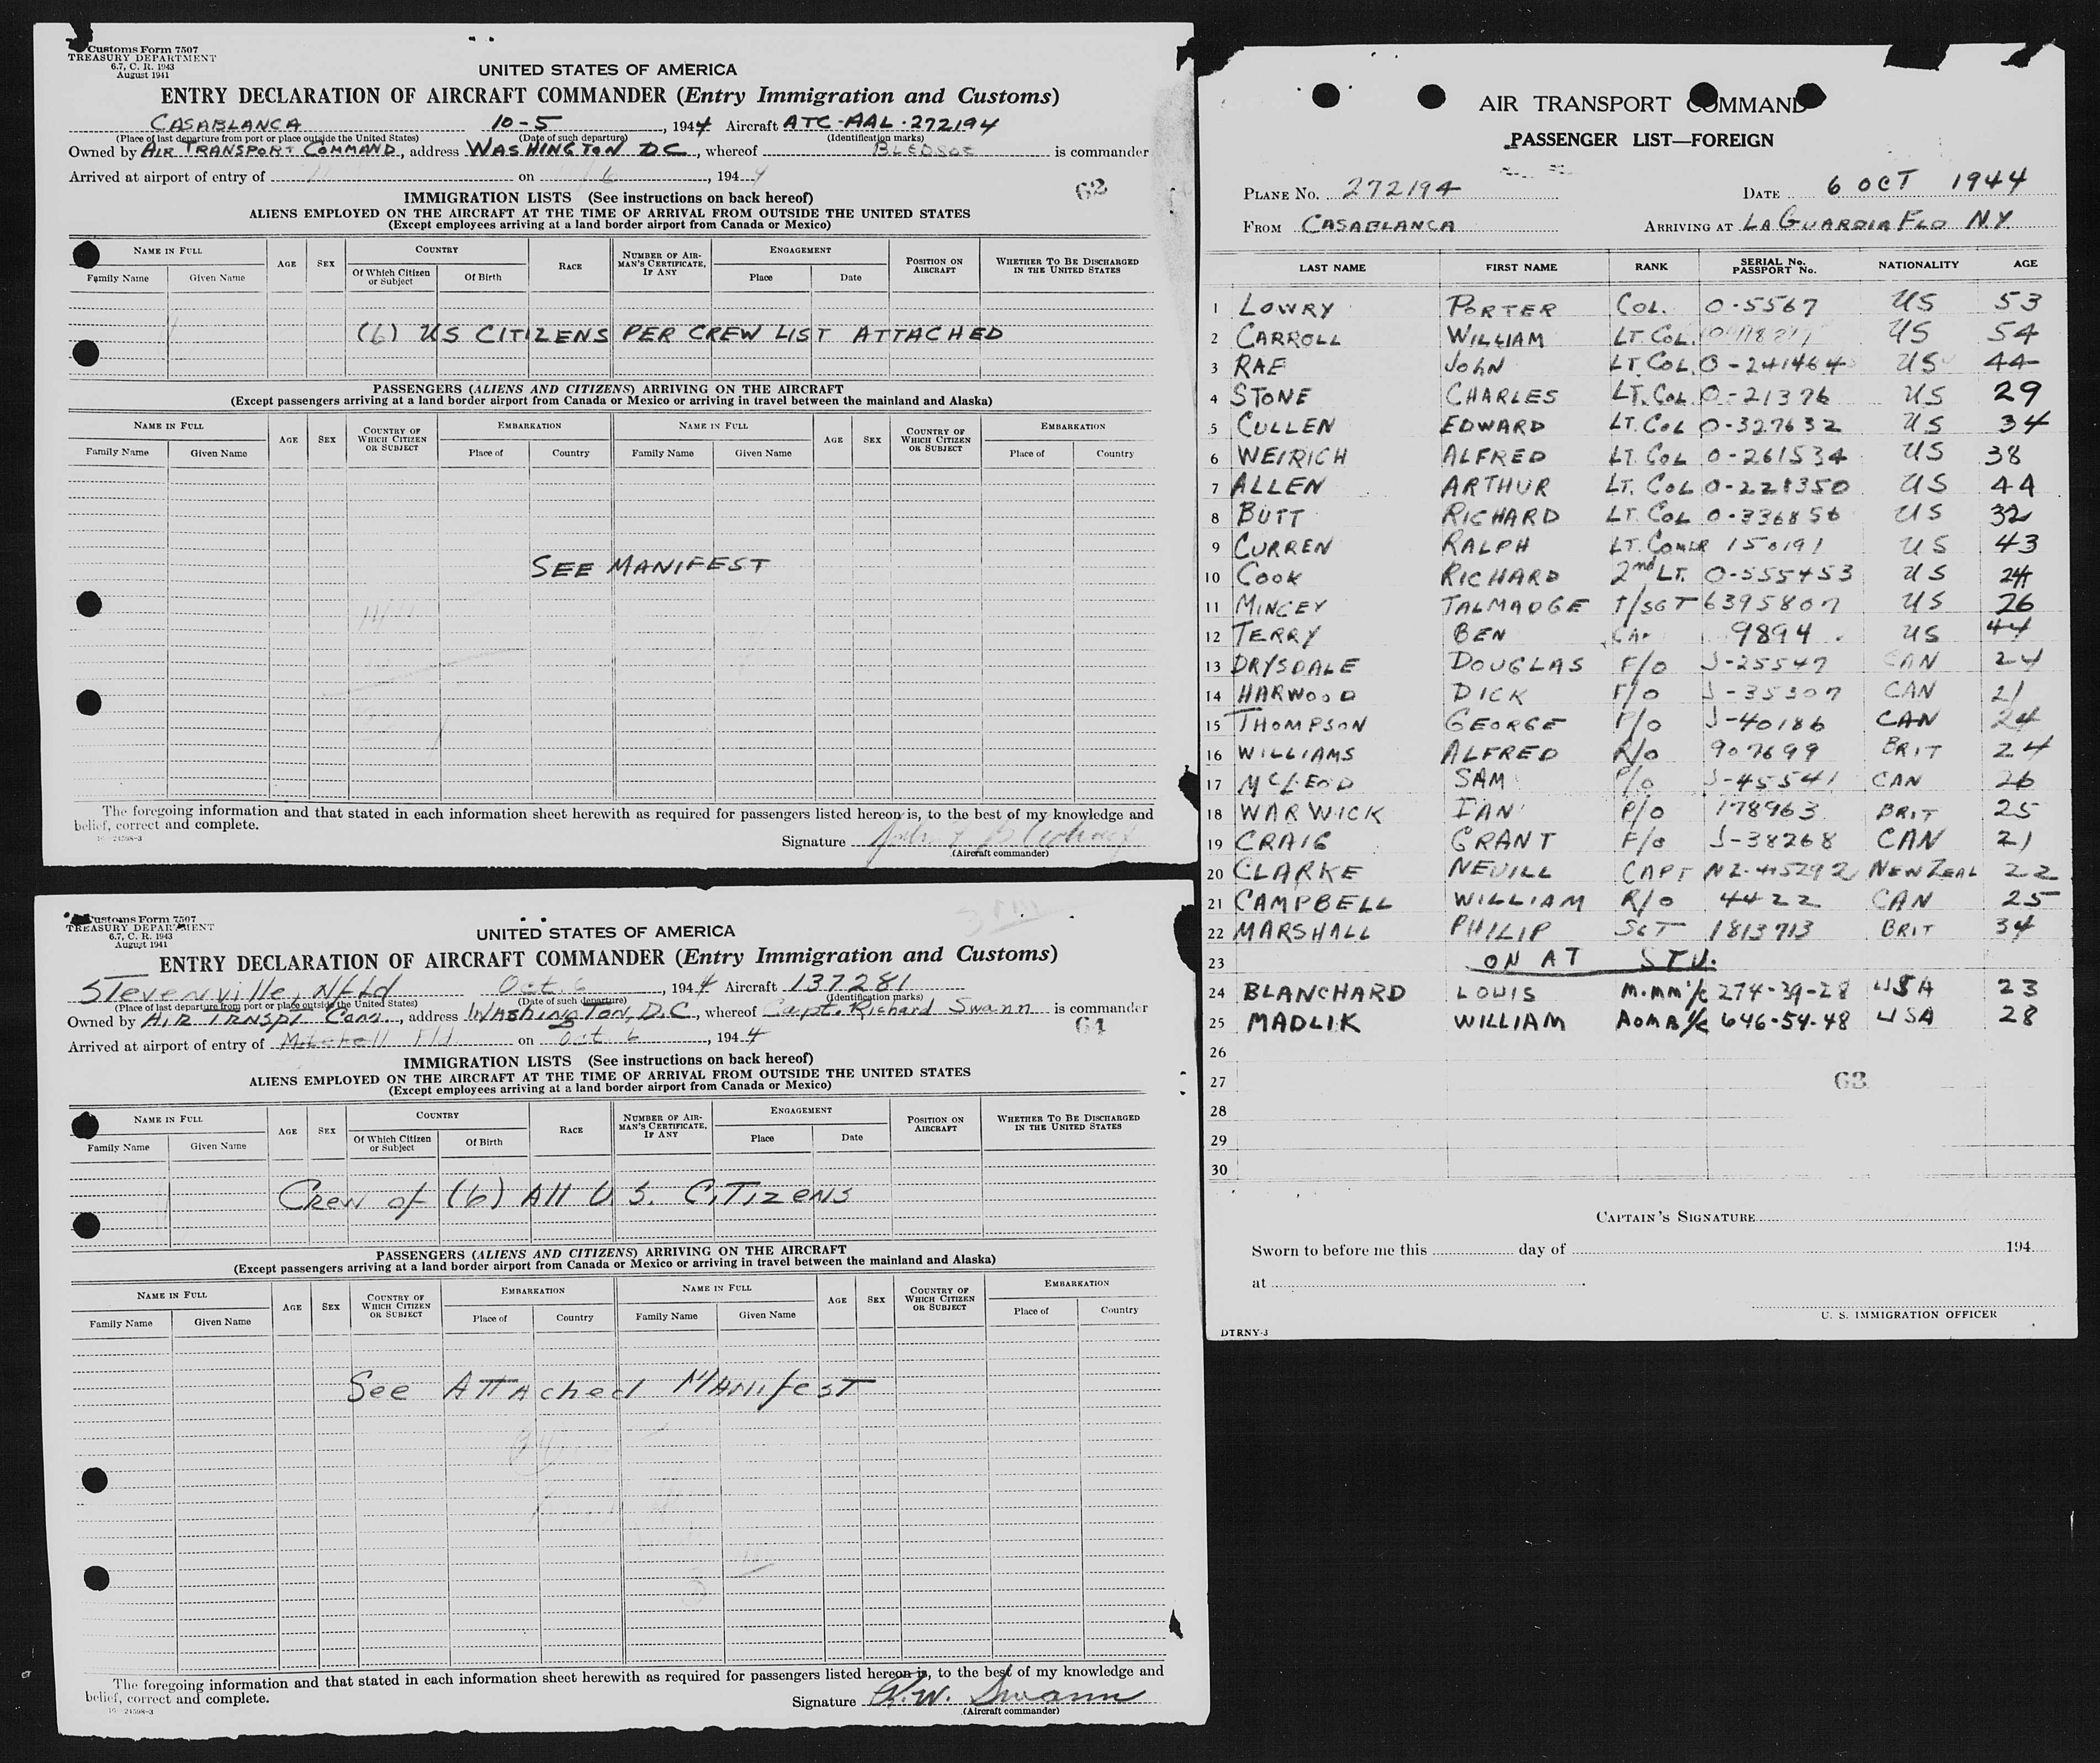 Customs Form 7507
TREASURY DEPARTMENT
6.7, C. R. 1943
August 1941
UNITED STATES OF AMERICA
ENTRY DECLARATION OF AIRCRAFT COMMANDER (Entry Immigration and Customs)
CASABLANCA 10-5, 1944 Aircraft ATC-AAL-272194
(Place of last departure from port or place outside the United States) (Date of such departure) (Identification marks)
Owned by AIR TRANSPORT COMMAND, address WASHINGTON DC, whereof BLEDSOE is commander
Arrived at airport of entry of on 6, 1944
62
IMMIGRATION LISTS (See instructions on back hereof)
ALIENS EMPLOYED ON THE AIRCRAFT AT THE TIME OF ARRIVAL FROM OUTSIDE THE UNITED STATES
(Except employees arriving at a land border airport from Canada or Mexico)
NAME IN FULL AGE SEX COUNTRY RACE NUMBER OF AIRMAN'S CERTIFICATE, IF ANY ENGAGEMENT POSITION ON AIRCRAFT WHETHER TO BE DISCHARGED IN THE UNITED STATES
Family Name Given Name Of Which Citizen or Subject Of Birth Place Date
(6) US CITIZENS PER CREW LIST ATTACHED
PASSENGERS (ALIENS AND CITIZENS) ARRIVING ON THE AIRCRAFT
(Except passengers arriving at a land border airport from Canada or Mexico or arriving in travel between the mainland and Alaska)
NAME IN FULL AGE SEX COUNTRY OF WHICH CITIZEN OR SUBJECT EMBARKATION NAME IN FULL AGE SEX COUNTRY OF WHICH CITIZEN OR SUBJECT EMBARKATION
Family Name Given Name Place of Country Family Name Given Name Place of Country
SEE MANIFEST
The foregoing information and that stated in each information sheet herewith as required for passengers listed hereon is, to the best of my knowledge and
belief, correct and complete.
16—24598-3
Signature
(Aircraft commander)
Customs Form 7507
TREASURY DEPARTMENT
6.7, C. R. 1943
August 1941
UNITED STATES OF AMERICA
ENTRY DECLARATION OF AIRCRAFT COMMANDER (Entry Immigration and Customs)
Stevenville, Nfld Oct. 6, 1944 Aircraft 137281
(Place of last departure from port or place outside the United States) (Date of such departure) (Identification marks)
Owned by Air Trnspt Com, address Washington, D.C., whereof Capt. Richard Swann is commander
64
Arrived at airport of entry of Mitchell Fld on Oct. 6, 1944
IMMIGRATION LISTS (See instructions on back hereof)
ALIENS EMPLOYED ON THE AIRCRAFT AT THE TIME OF ARRIVAL FROM OUTSIDE THE UNITED STATES
(Except employees arriving at a land border airport from Canada or Mexico)
NAME IN FULL AGE SEX COUNTRY RACE NUMBER OF AIRMAN'S CERTIFICATE, IF ANY ENGAGEMENT POSITION ON AIRCRAFT WHETHER TO BE DISCHARGED IN THE UNITED STATES
Family Name Given Name Of Which Citizen or Subject Of Birth Place Date
Crew of (6) All U.S. Citizens
PASSENGERS (ALIENS AND CITIZENS) ARRIVING ON THE AIRCRAFT
(Except passengers arriving at a land border airport from Canada or Mexico or arriving in travel between the mainland and Alaska)
NAME IN FULL AGE SEX COUNTRY OF WHICH CITIZEN OR SUBJECT EMBARKATION NAME IN FULL AGE SEX COUNTRY OF WHICH CITIZEN OR SUBJECT EMBARKATION
Family Name Given Name Place of Country Family Name Given Name Place of Country
See Attached Manifest
The foregoing information and that stated in each information sheet herewith as required for passengers listed hereon is, to the best of my knowledge and
belief, correct and complete.
16—24598-3
Signature R.W. Swann
(Aircraft commander)
AIR TRANSPORT COMMAND
PASSENGER LIST—FOREIGN
PLANE No. 272194 DATE 6 OCT 1944
FROM CASABLANCA ARRIVING AT LA GUARDIA FLD N.Y.
LAST NAME FIRST NAME RANK SERIAL No. PASSPORT No. NATIONALITY AGE
1 LOWRY PORTER COL. O-5567 US 53
2 CARROLL WILLIAM LT. COL. US 54
3 RAE JOHN LT. COL. O-241464 US 44
4 STONE CHARLES LT. COL O-21376 US 29
5 CULLEN EDWARD LT. COL O-327632 US 34
6 WEIRICH ALFRED LT. COL O-261534 US 38
7 ALLEN ARTHUR LT. COL O-228350 US 44
8 BUTT RICHARD LT. COL O-336856 US 32
9 CURREN RALPH LT. COMDR 150191 US 43
10 COOK RICHARD 2nd LT. O-555453 US 24
11 MINCEY TALMADGE T/SGT 6395807 US 26
12 TERRY BEN 9894 US 44
13 DRYSDALE DOUGLAS F/O J-25547 CAN 24
14 HARWOOD DICK F/O J-35307 CAN 21
15 THOMPSON GEORGE P/O J-40186 CAN 24
16 WILLIAMS ALFRED R/O 907699 BRIT 24
17 McLEOD SAM P/O J-45541 CAN 26
18 WARWICK IAN P/O 178963 BRIT 25
19 CRAIG GRANT F/O J-38268 CAN 21
20 CLARKE NEVILL CAPT NZ-415292 NEW ZEAL 22
21 CAMPBELL WILLIAM R/O 4422 CAN 25
22 MARSHALL PHILIP SGT 1813713 BRIT 34
23 ON AT STV.
24 BLANCHARD LOUIS M.MM 1/c 274-39-28 USA 23
25 MADLIK WILLIAM AOMB 1/c 646-54-48 USA 28
26
27 63
28
29
30
CAPTAIN'S SIGNATURE
Sworn to before me this day of 194
at
U. S. IMMIGRATION OFFICER
DTRNY-3